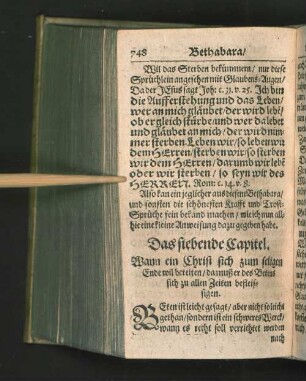 748 Bethabara/
Wil das Sterben bekümmern/ nur diese
Sprüchlein angesehen mit Glaubens-Augen/
Da der JEsus sagt Joh: c. 11. v. 25. Ich bin
die Aufferstehung und das Leben/
wer an mich gläubet/ der wird lebē/
ob er gleich stürbe/ und wer da lebet
und gläubet an mich/ der wird nim-
mer sterben. Leben wir/ so leben wir
dem HErren/ sterben wir/ so sterben
wir dem HErren/ darum wir lebē
oder wir sterben/ so seyn wir des
HERREN. Rom: c. 14. v. 8.
Also kan ein jeglicher aus diesem Bethabara/
und sonsten die schönesten Krafft und Trost-
Sprüche sein bekand machen/ wie ich nun all-
hie eine kleine Anweisung dazu gegeben habe.
Das siebende Capitel.
Wann ein Christ sich zum seligen
Ende wil bereiten/ da muß er des Betens
sich zu allen Zeiten befleis-
sigen.
BEten ist leicht gesagt/ aber nicht so leicht
gethan/ sondern ist ein schweres Werck/
wann es recht soll verrichtet werden
nach